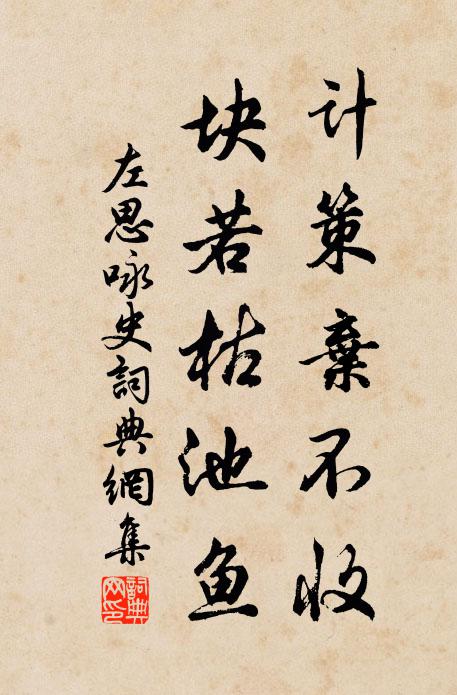 计策棄不收
块若枯池鱼
左思咏史詞典網集
詞典网印